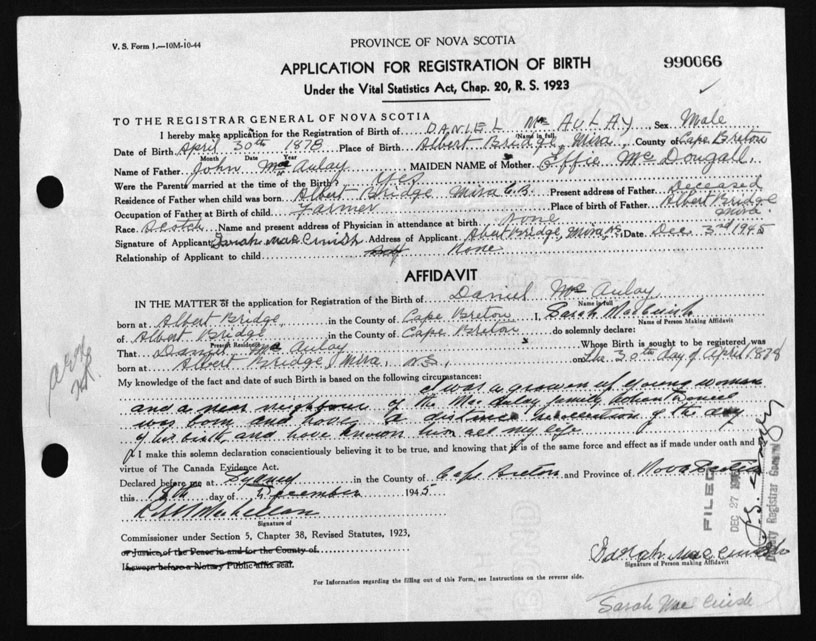 V. S. Form 1.—10M-10-44
PROVINCE OF NOVA SCOTIA
APPLICATION FOR REGISTRATION OF BIRTH
990066
Under the Vital Statistics Act, Chap. 20, R. S. 1923
TO THE REGISTRAR GENERAL OF NOVA SCOTIA
I hereby make application for the Registration of Birth of DANIEL Mac AULAY, Sex Male
(Name in full)
Date of Birth April 30th 1878 Place of Birth Albert Bridge, Mira, County of Cape Breton
Month Date Year
Name of Father John Mac Aulay MAIDEN NAME of Mother Effie McDougall,
Were the Parents married at the time of the Birth? yes
Residence of Father when child was born Albert Bridge Mira C.B. Present address of Father Deceased
Occupation of Father at Birth of child Farmer Place of birth of Father Albert Bridge Mira.
Race Scotch Name and present address of Physician in attendance at birth None
Signature of Applicant Sarah MacCuish Address of Applicant Albert Bridge, Mira, Date Dec 3rd 1945
Relationship of Applicant to child None
AFFIDAVIT
IN THE MATTER of the application for Registration of the Birth of Daniel Mac Aulay
Name in full
born at Albert Bridge, in the County of Cape Breton I, Sarah MacCuish
Name of Person Making Affidavit
of Albert Bridge in the County of Cape Breton do solemnly declare:
Present Residence
That Daniel Mac Aulay Whose Birth is sought to be registered was
born at Albert Bridge, Mira, N.S., on the 30th day of April 1878
My knowledge of the fact and date of such Birth is based on the following circumstances:
I was a grown up young woman
and a near neighbour of the MacAulay family when Daniel
was born and have a distinct recollection of the day
of his birth, and have known him all my life.
I make this solemn declaration conscientiously believing it to be true, and knowing that it is of the same force and effect as if made under oath and by
virtue of The Canada Evidence Act.
Declared before me at Sydney in the County of Cape Breton and Province of Nova Scotia
this 18th day of December 1945
Signature of
Commissioner under Section 5, Chapter 38, Revised Statutes, 1923,
or Justice of the Peace in and for the County of
If sworn before a Notary Public affix seal.
Sarah MacCuish
Signature of Person making Affidavit
For Information regarding the filling out of this Form, see Instructions on the reverse side.
Sarah Mac Cuish
FILED
DEC 27 1945
Deputy Registrar General